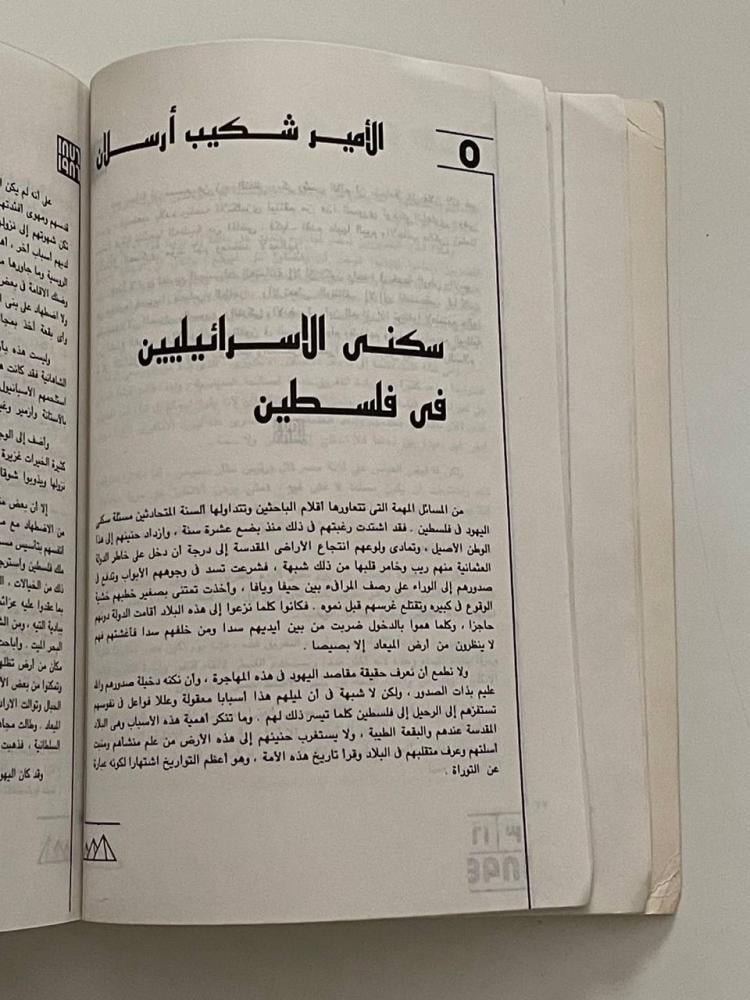 ٥
الأمير شكيب أرسلان
سكنى الاسرائيليين
فى فلسطين
من المسائل المهمة التى تتعاورها أقلام الباحثين وتتداولها ألسنة المتحادثين مسئلة سكنى
اليهود فى فلسطين . فقد اشتدت رغبتهم فى ذلك منذ بضع عشرة سنة ، وازداد حنينهم إلى هذا
الوطن الأصيل ، وتمادى ولوعهم انتجاع الأراضى المقدسة إلى درجة أن دخل على خاطر الدولة
العثمانية منهم ريب وخامر قلبها من ذلك شبهة ، فشرعت تسد فى وجوههم الأبواب وتدفع فى
صدورهم إلى الوراء على رصف المرافىء بين حيفا ويافا ، وأخذت تعتنى بصغير خطبهم خشية
الوقوع فى كبيره وتقتلع غرسهم قبل نموه . فكانوا كلما نزعوا إلى هذه البلاد أقامت الدولة دونهم
حاجزا ، وكلما هموا بالدخول ضربت من بين أيديهم سدا ومن خلفهم سدا فأغشتهم فهم
لا ينظرون من أرض الميعاد إلا بصيصا .
ولا نطمع أن نعرف حقيقة مقاصد اليهود فى هذه المهاجرة ، وأن نكته دخيلة صدورهم والله
عليم بذات الصدور ، ولكن لا شبهة فى أن لميلهم هذا أسبابا معقولة وعللا فواعل فى نفوسهم
تستفزهم إلى الرحيل إلى فلسطين كلما تيسر ذلك لهم . وما تنكر أهمية هذه الأسباب وهى البلاد
المقدسة عندهم والبقعة الطيبة ، ولا يستغرب حنينهم إلى هذه الأرض من علم منشأهم ومنبت
أسلتهم وعرف متقلبهم فى البلاد وقرأ تاريخ هذه الأمة ، وهو أعظم التواريخ اشتهارا لكونه عبارة
عن التوراة .
على أنه لم يكن
قدسهم ومهوى أفئدتهم
تكن شهوتهم إلى نزول
لديهم أسباب أخر ،
الروسية وما جاورها
وضنك الاقامة فى بعض
ولا اضطهاد على بنى
وأى بقعة أخذ
وليست هذه
الشاهانية فقد كانت
الأسبانيول
بالأستانة وأزمير
واضف إلى
كثيرة الخيرات غزيرة
نزولها ويذوبوا شوقا
إلا أن بعض
من الاضطهاد مع
انفسهم بتأسيس
ملك فلسطين
ذلك من الخيالات ،
بما عقدوا عليه
ببادية التيه ، ومن
البحر الميت .
مكان من أرض
وتمكنوا من بعض
الحبال وتوالت
الميعاد . وطالت
السلطانية ، فذهبت
وقد كان